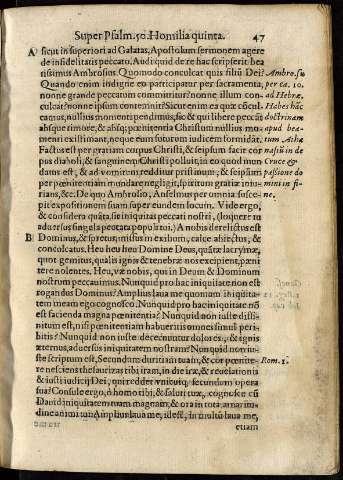 Super Psalm. 50. Homilia quinta. 47
A sicut in superiori ad Galatas, Apostolum sermonem agere
de infidelitatis peccato. Audi quid de re hac scripserit bea
tissimus Ambrosius: Quomodo conculcat quis filiũ Dei? Ambro. su
Quando enim indigne eo participatur per sacramenta, per ca. 10.
nonne grande peccatum committitur? nonne illum con- ad Hebræ.
culcat? nonne ipsum contemnit? Sicut enim ea quæ cõcul. Habes hãc
camus, nullius momenti pendimus, sic & qui libere peccãt doctrinam
absque timore, & absq; pœnitentia Christum nullius mo- apud bea-
menti existimant, neque eum futurum iudicem formidãt. tum Atha
Factus est per gratiam corpus Christi, & seipsum facit cor nasiũ in de
pus diaboli, & sanguinem Christi polluit, in eo quod mun Cruce &
datus est, & ad vomitum redditur pristinum, & seipsum passione do
per pœnitentiam mundare negligit, spiritum gratiæ iniu- mini in fi-
rians, &c. De quo Ambrosio, Anselmus per omnia susce- ne.
pit expositionem suam super eundem locum. Vide ergo,
& considera quãta sie iniquitas peccati nostri, (loquere tu
aduersus singula peccata populi tui.) A nobis derelictus est
B Dominus, & spretus, missus in exilium, calce abiectus, &
conculcatus. Heu heu heu Domine Deus, quãtæ lacrymæ,
quot gemitus, qualis ignis & tenebræ nos excipient, pœni
tere nolentes. Heu, væ nobis, qui in Deum & Dominum
nostrum peccauimus. Nunquid pro hac iniquitate non est
rogandus Dominus? Amplius laua me quoniam iniquita-
tem meam ego cognosco. Nunquid pro hac iniquitate nõ
est facienda magna pœnitentia? Nunquid non iuste diffi-
nitum est, nisi pœnitentiam habueritis omnes simul peri-
bitis? Nunquid non iuste decernuntur dolor ex, & ignis
æternus, aduersus iniquitatem nostram? Nunquid non iu-
ste scriptum est, Secundum duritiam tuam, & cor pœnite- Rom. 2.
re nesciens thesaurizas tibi iram, in die iræ, & reuelationis
& iusti iudicij Dei, qui reddet vnicuiq; secundum opera
sua? Consule ergo, ô homo tibi, & saluti tuæ, cognosce cũ
Dauid iniquitatem tuam magnam, & ora in tota amaritu-
dine animi tui Amplius laua me, id est, in multũ laua me,
etiam